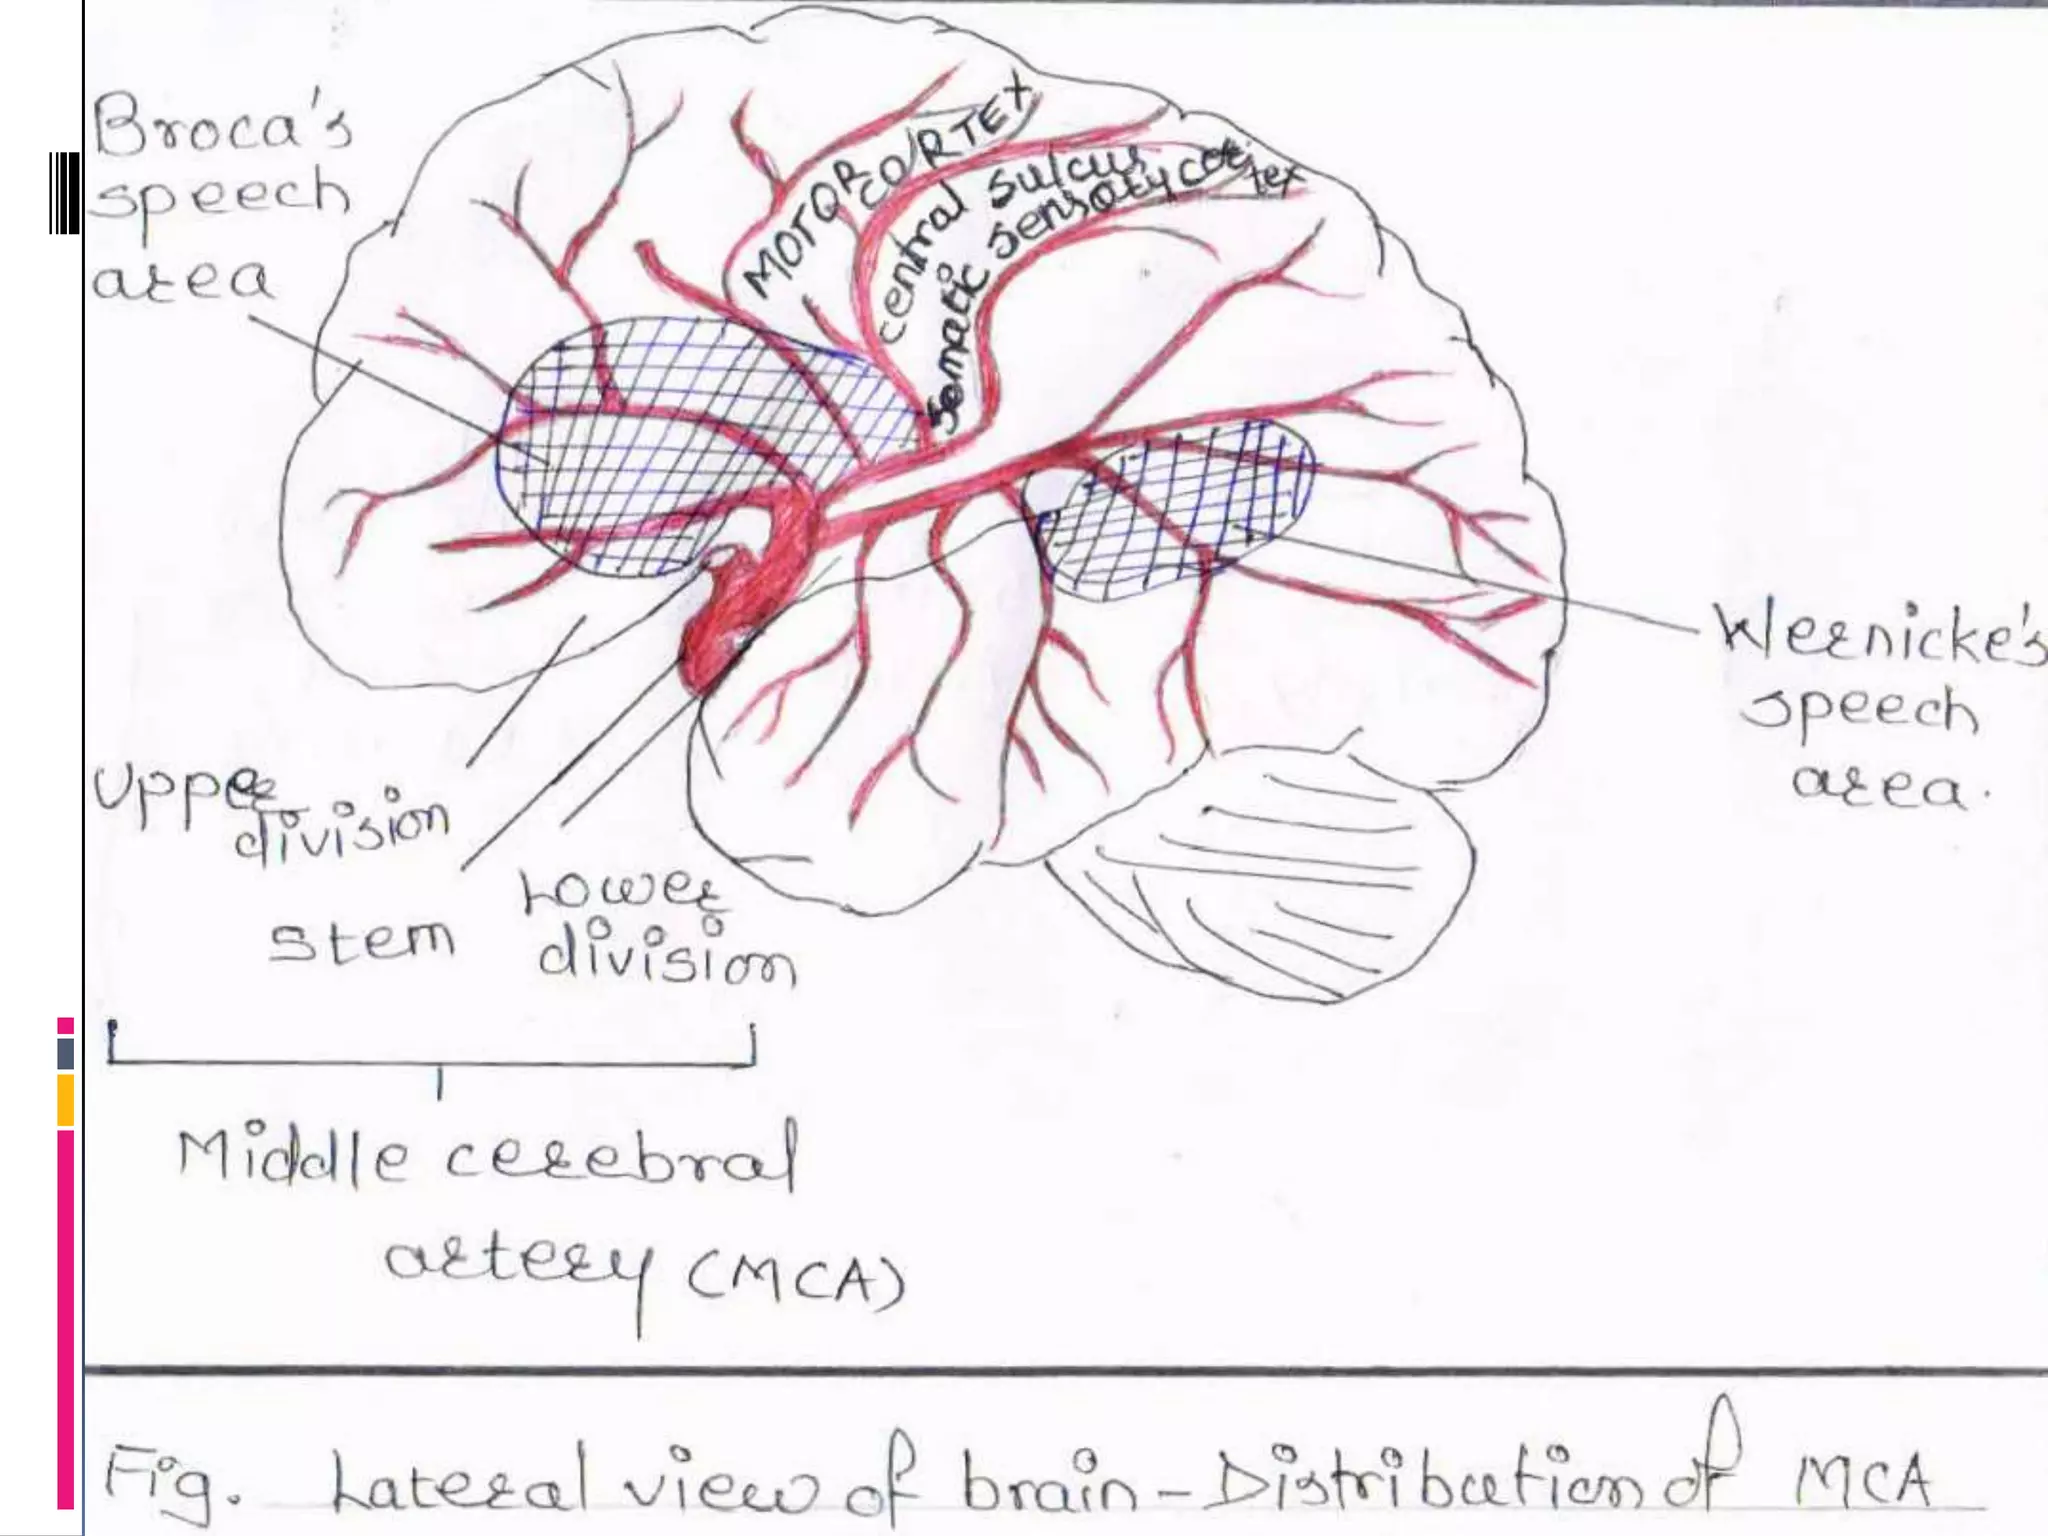 Broca's
speech
area
MOTOR CORTEX
central sulcus
somatic sensory cortex
Wernicke's
speech
area.
Upper
division
stem
Lower
division
Middle cerebral
artery (MCA)
Fig. Lateral view of brain - Distribution of MCA